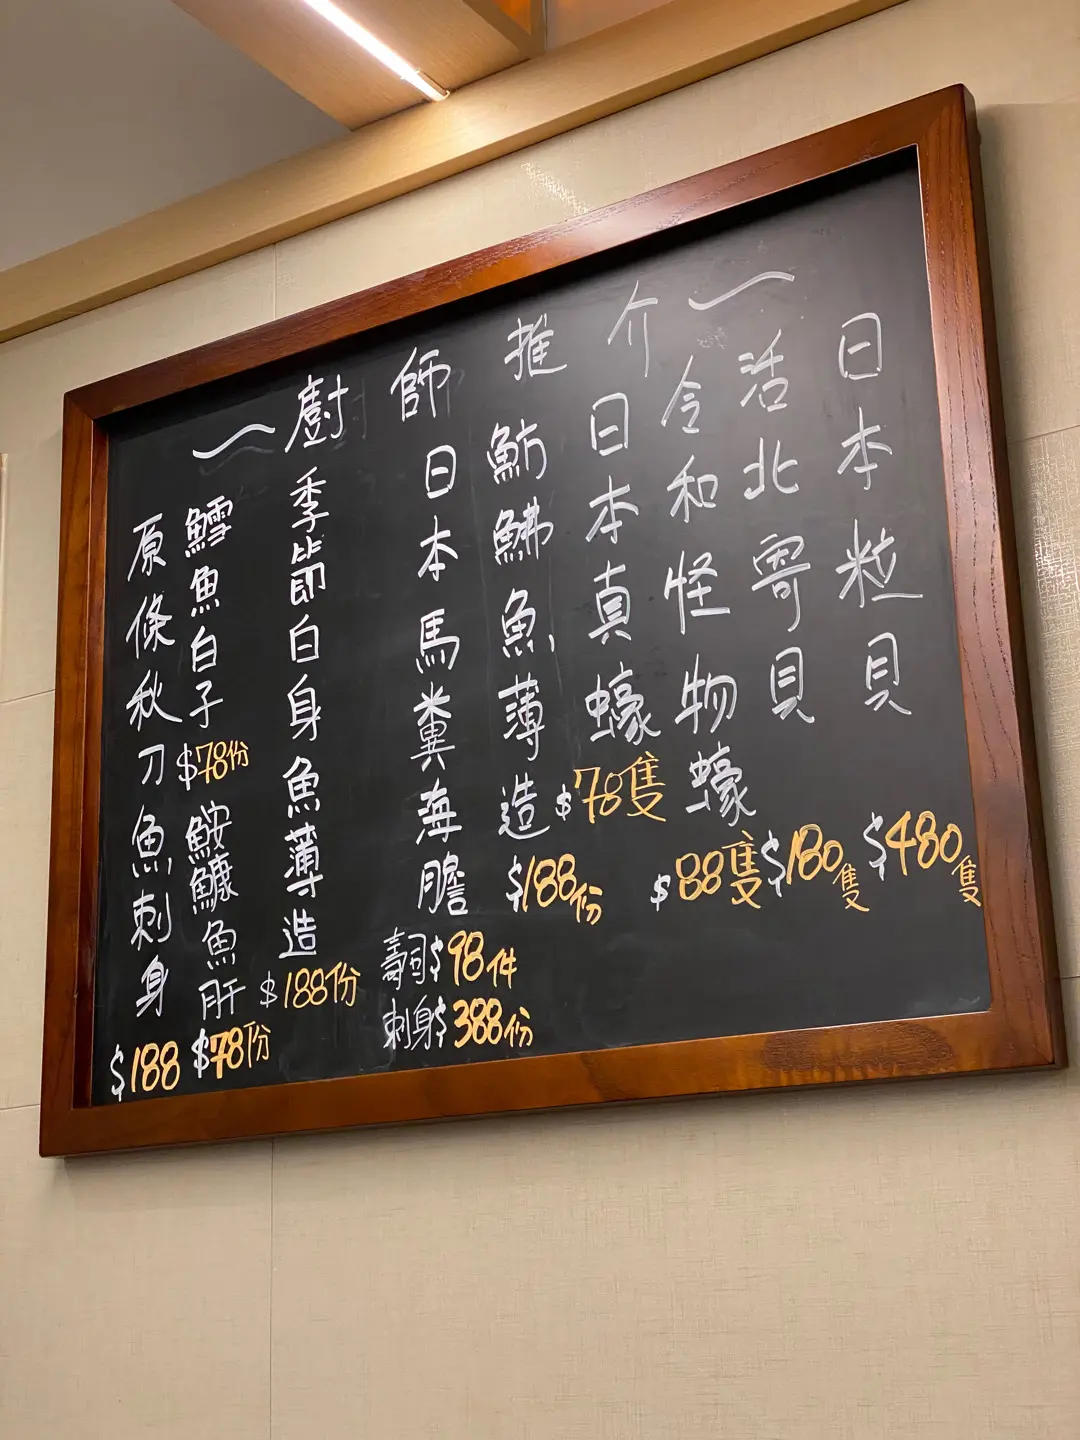 ～廚師推介～
日本粒貝
$480隻
活北寄貝
$180隻
令和怪物蠔
$88隻
日本真蠔
$78隻
魴鮄魚薄造
$188份
日本馬糞海膽
壽司$98件
刺身$388份
季節白身魚薄造
$188份
鱈魚白子
$78份
鮟鱇魚肝
$78份
原條秋刀魚刺身
$188